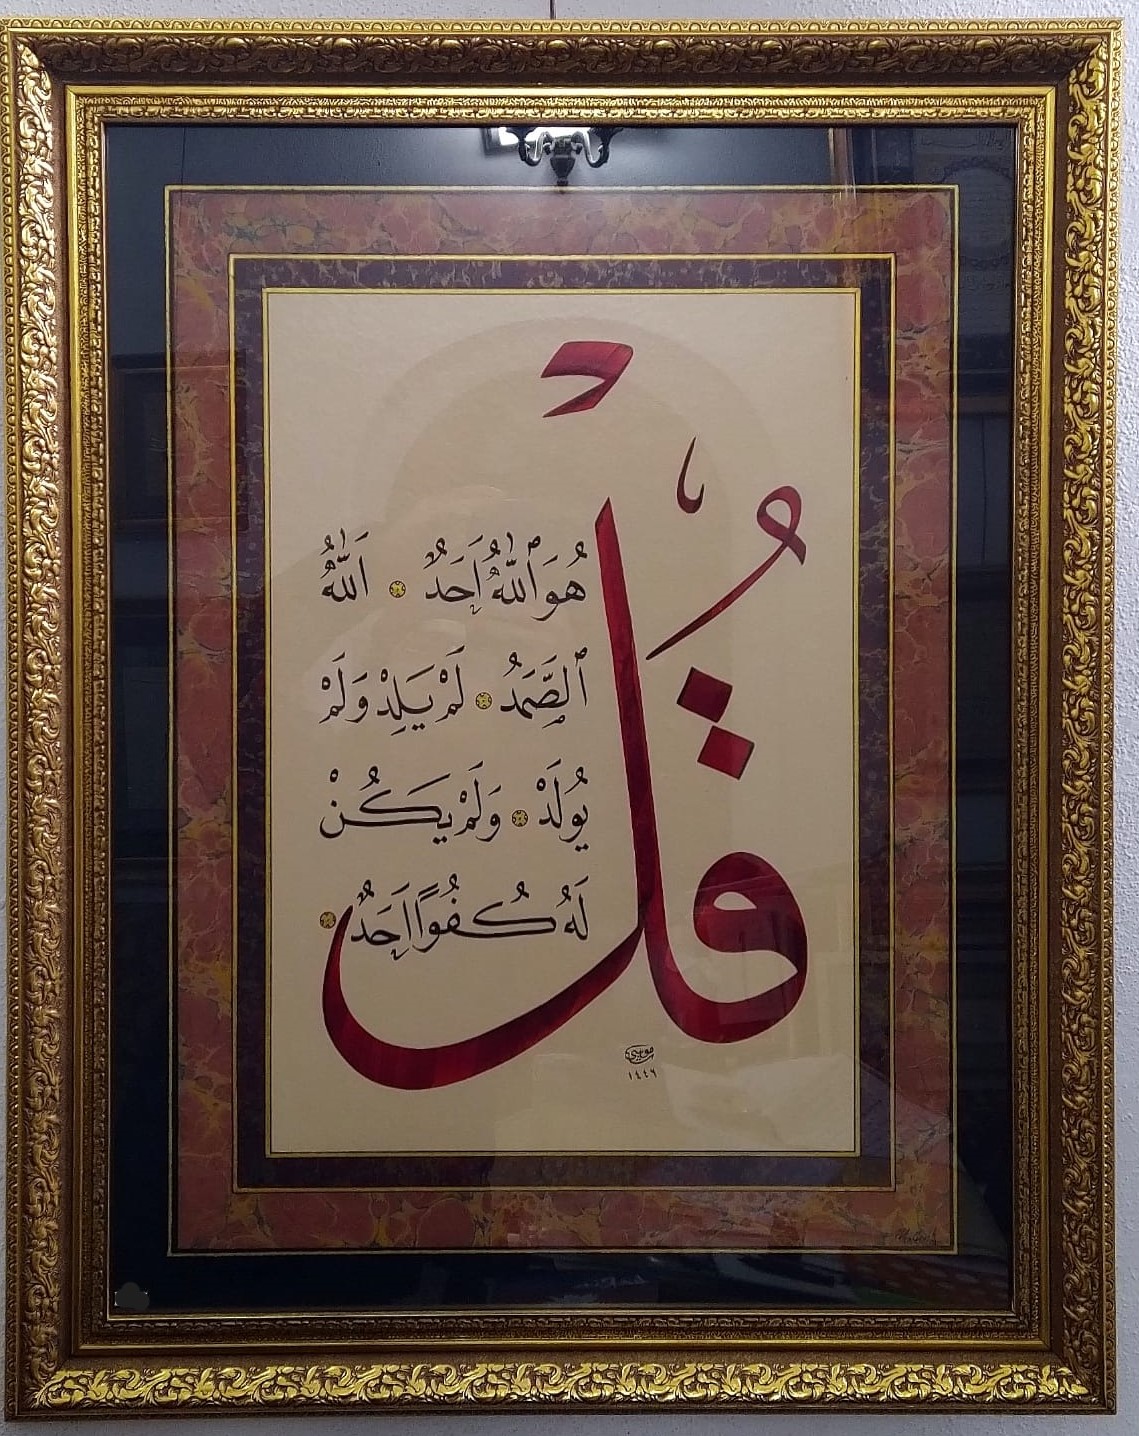 قُلْ
هُوَ ٱللّٰهُ اَحَدٌ ۞ اَللّٰهُ
ٱلصَّمَدُ ۞ لَمْ يَلِدْ وَلَمْ
يُولَدْ ۞ وَلَمْ يَكُنْ
لَهُ كُفُوًا اَحَدٌ ۞
موسى
١٤٤٦